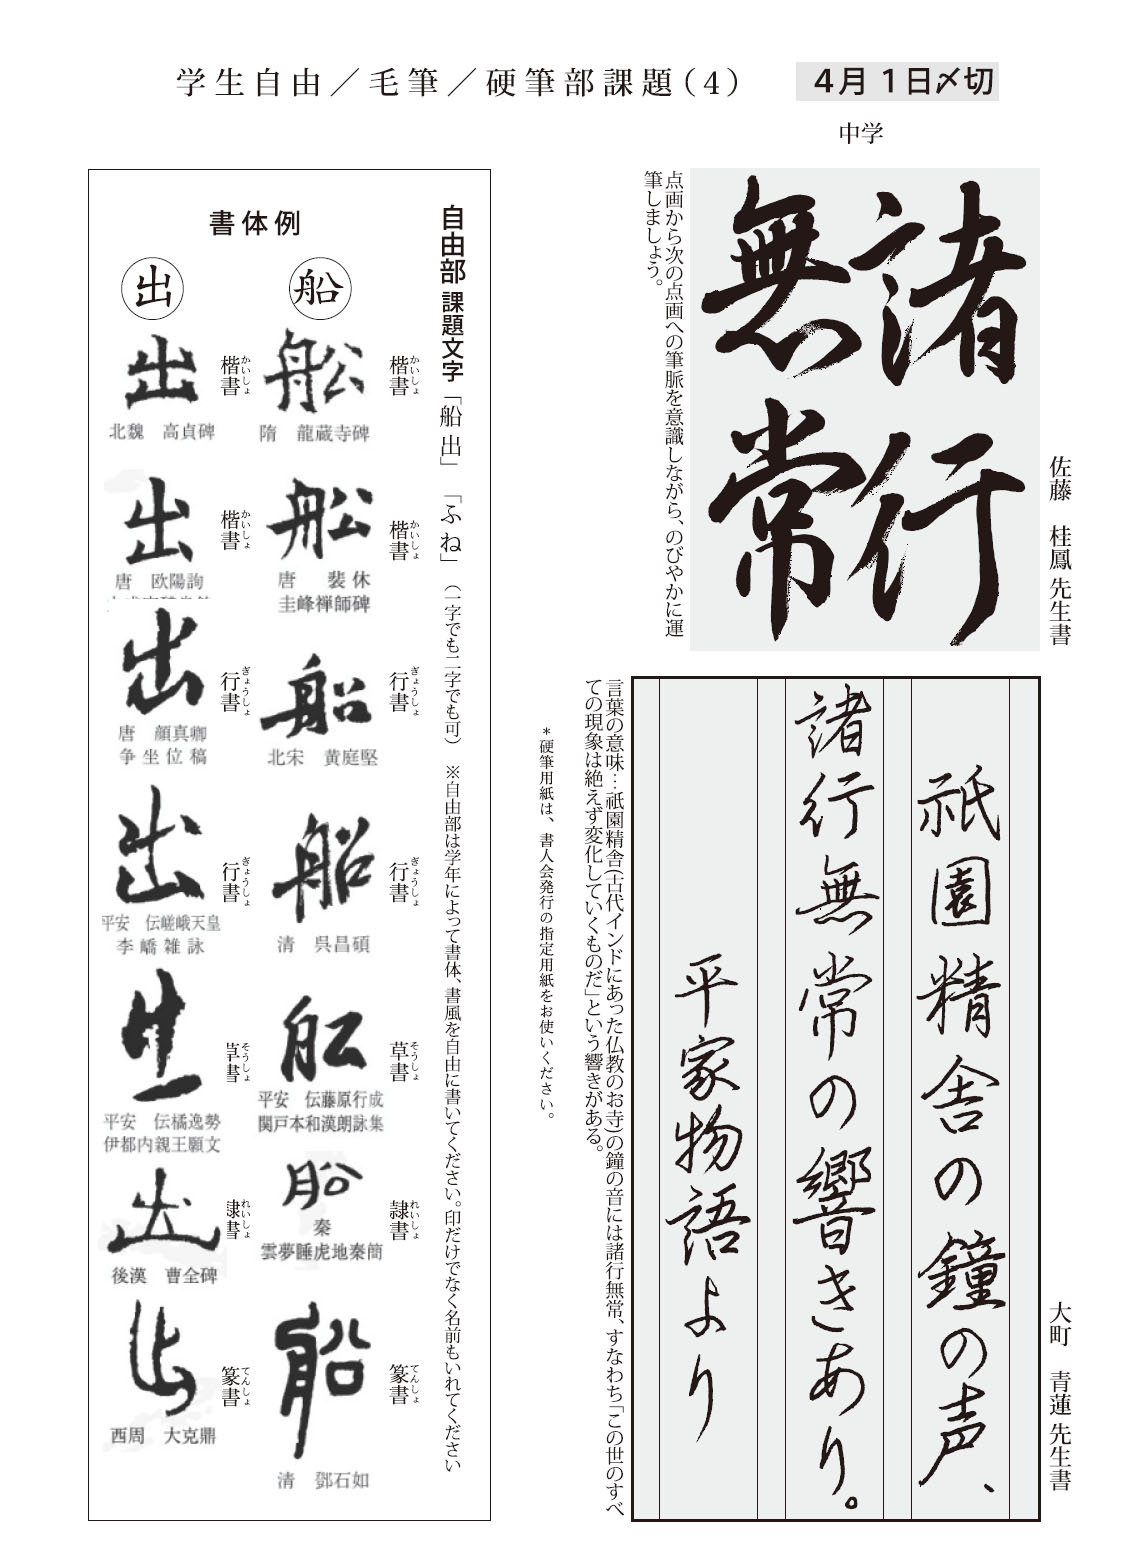 学生自由／毛筆／硬筆部課題(4)
4月1日〆切
中学
諸行
無常
佐藤　桂鳳先生書
点画から次の点画への筆脈を意識しながら、のびやかに運
筆しましょう。
祇園精舎の鐘の声、
諸行無常の響きあり。
平家物語より
大町　青蓮先生書
言葉の意味…祇園精舎(古代インドにあった仏教のお寺)の鐘の音には諸行無常、すなわち「この世のすべ
ての現象は絶えず変化していくものだ」という響きがある。
＊硬筆用紙は、書人会発行の指定用紙をお使いください。
自由部 課題文字「船出」「ふね」（一字でも二字でも可）　※自由部は学年によって書体、書風を自由に書いてください。印だけでなく名前もいれてください
書体例
船
船
楷書
かいしょ
隋　龍蔵寺碑
船
楷書
かいしょ
唐　裴休
圭峰禅師碑
船
行書
ぎょうしょ
北宋　黄庭堅
船
行書
ぎょうしょ
清　呉昌碩
船
草書
そうしょ
平安　伝藤原行成
関戸本和漢朗詠集
船
隷書
れいしょ
秦
雲夢睡虎地秦簡
船
篆書
てんしょ
清　鄧石如
出
出
楷書
かいしょ
北魏　高貞碑
出
楷書
かいしょ
唐　欧陽詢
出
行書
ぎょうしょ
唐　顔真卿
争坐位稿
出
行書
ぎょうしょ
平安　伝嵯峨天皇
李嶠雑詠
出
草書
そうしょ
平安　伝橘逸勢
伊都内親王願文
出
隷書
れいしょ
後漢　曹全碑
出
篆書
てんしょ
西周　大克鼎